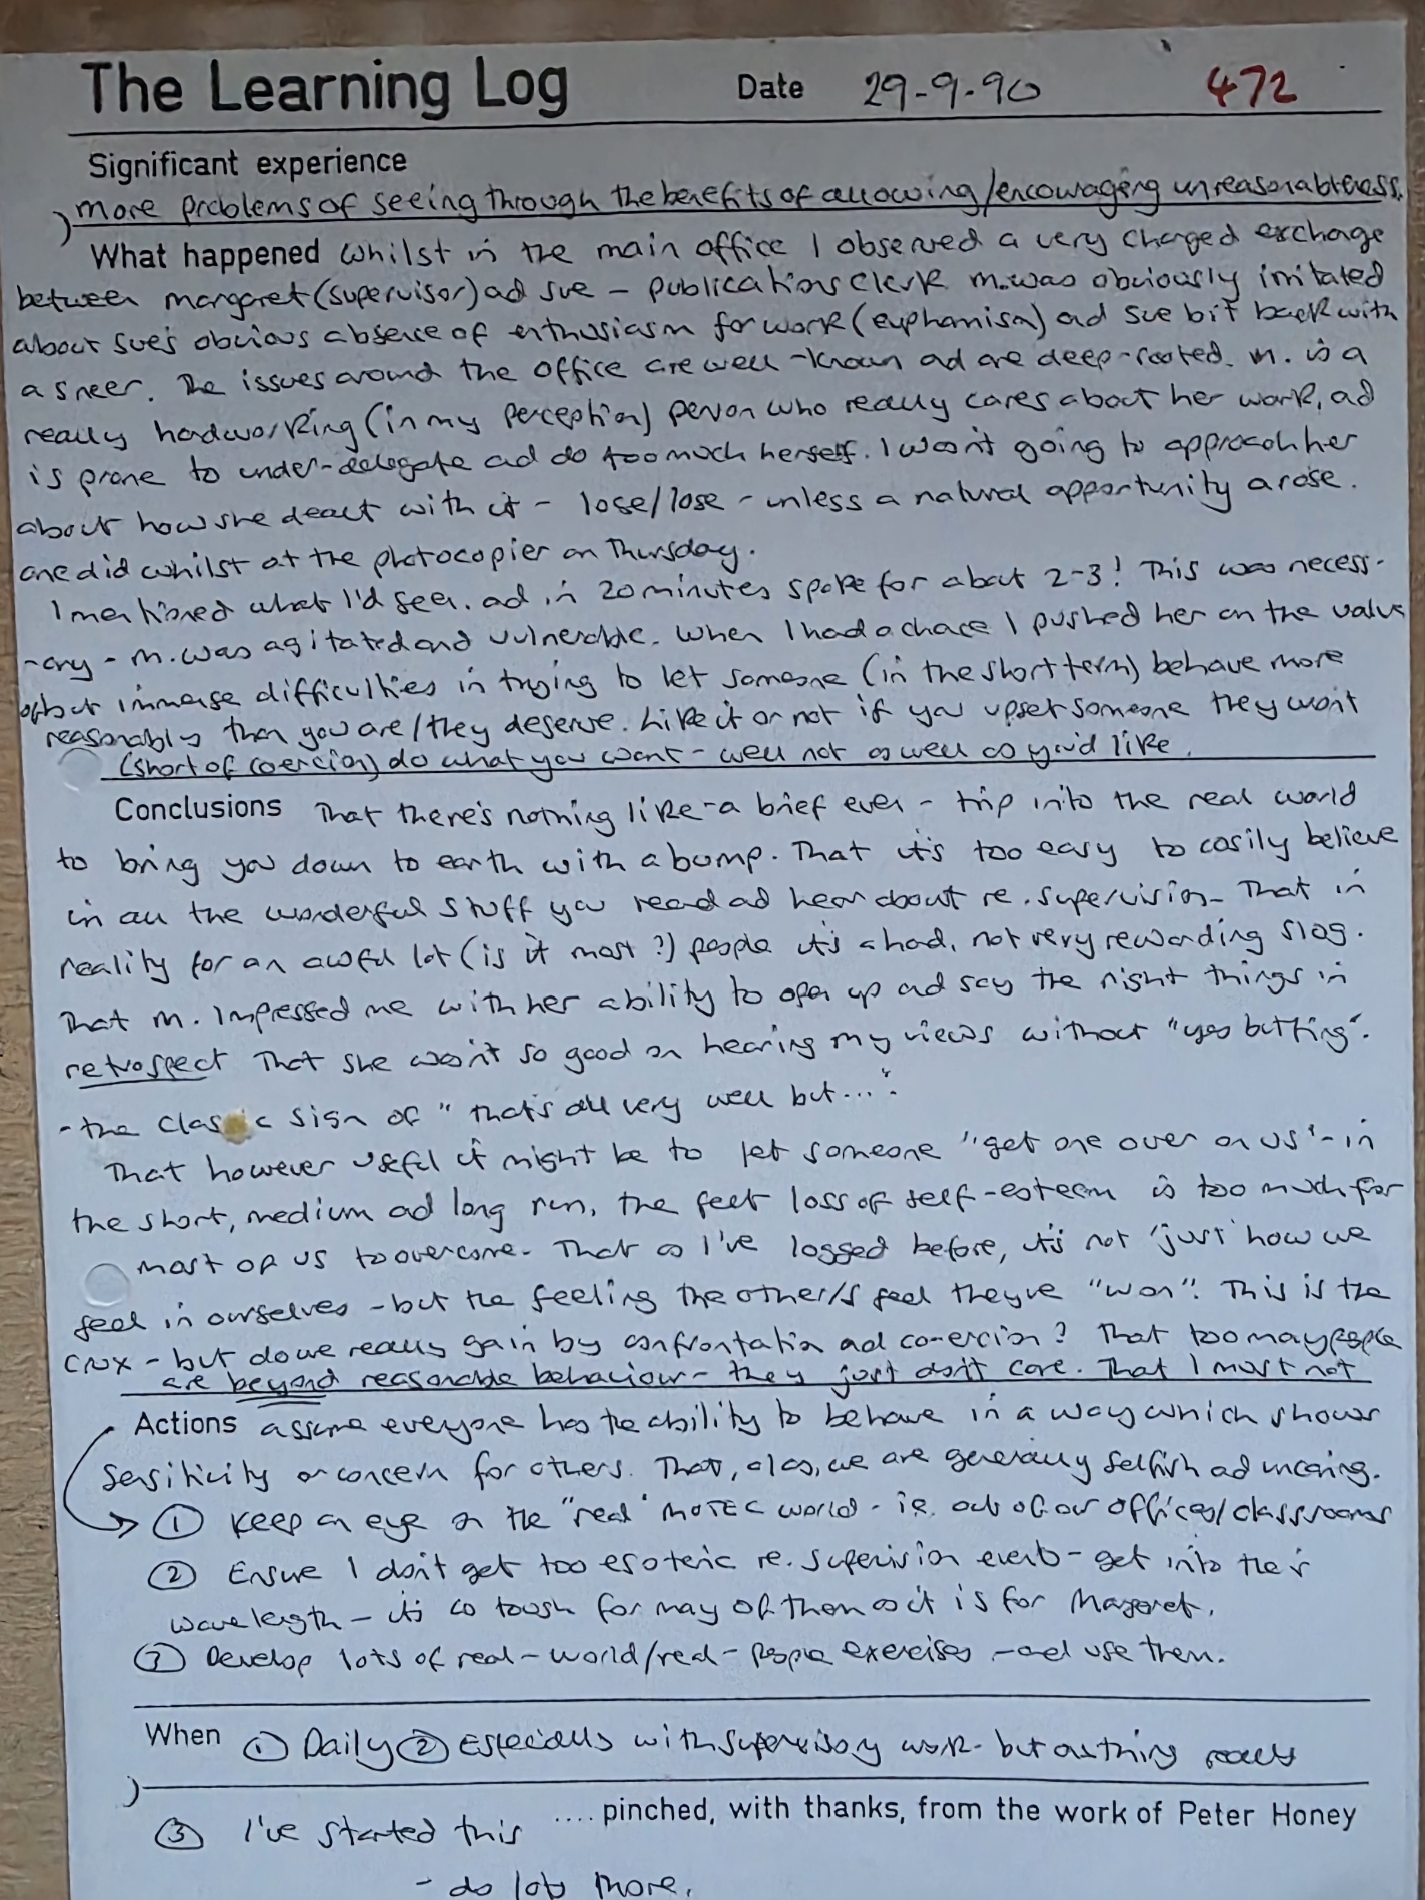 The Learning Log Date 29-9-90 472
Significant experience
more problems of seeing through the benefits of allowing/encouraging unreasonableness.
What happened whilst in the main office I observed a very charged exchange
between margaret (supervisor) ad sue - publications clerk. m. was obviously irritated
about sue's obvious absence of enthusiasm for work (euphamism) ad sue bit back with
a sneer. The issues around the office are well-known ad are deep-rooted. m. is a
really hardworking (in my perception) person who really cares about her work, ad
is prone to under-delegate ad do too much herself. I wasn't going to approach her
about how she dealt with it - lose/lose - unless a natural opportunity arose.
one did whilst at the photocopier on Thursday.
I mentioned what I'd seen. ad in 20 minutes spoke for about 2-3! This was necess-
-ary - m. was agitated and vulnerable. When I had a chance I pushed her on the value
of but immense difficulties in trying to let someone (in the short term) behave more
reasonably than you are/they deserve. Like it or not if you upset someone they won't
(short of coercion) do what you want - well not as well as you'd like.
Conclusions That there's nothing like a brief ever - trip into the real world
to bring you down to earth with a bump. That it's too easy to cosily believe
in all the wonderful stuff you read ad hear about re. supervision - That in
reality for an awful lot (is it most?) people it's a hard, not very rewarding slog.
That m. impressed me with her ability to open up ad say the right things in
retrospect That she wasn't so good on hearing my views without "yes butting".
- the classic sign of "that's all very well but...".
That however useful it might be to let someone "get one over on us" - in
the short, medium ad long run, the felt loss of self-esteem is too much for
most of us to overcome. That as I've logged before, it's not 'just' how we
feel in ourselves - but the feeling the other/s feel they've "won". This is the
crux - but do we really gain by confrontation ad co-ercion? That too many people
are beyond reasonable behaviour - they just don't care. That I must not
Actions assume everyone has the ability to behave in a way which shows
sensitivity or concern for others. That, alas, we are generally selfish ad uncaring.
① Keep an eye on the "real" MOTEC world - ie. out of our offices/classrooms
② Ensure I don't get too esoteric re. supervision events - get into their
wavelength - it's as tough for many of them as it is for Margaret.
③ Develop lots of real-world/real-people exercises - and use them.
When ① Daily ② Especially with supervisory work - but anything really
.... pinched, with thanks, from the work of Peter Honey
③ I've started this
- do lots more.